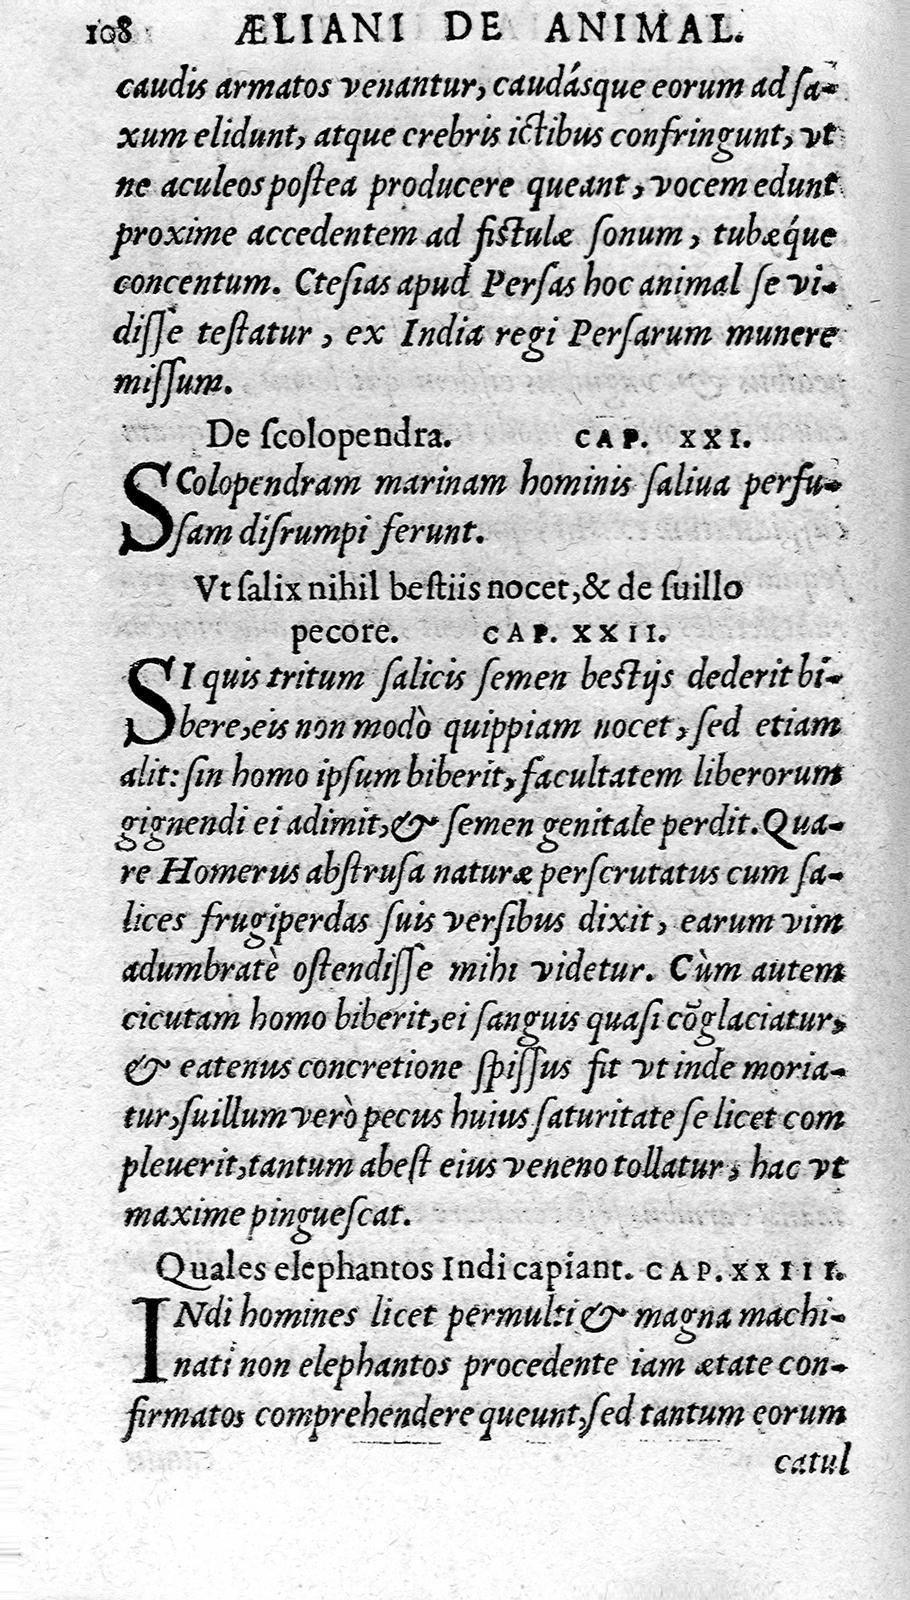 108 ÆLIANI DE ANIMAL.
caudis armatos venantur, caudásque eorum ad ſa-
xum elidunt, atque crebris ictibus confringunt, vt
ne aculeos poſtea producere queant, vocem edunt
proxime accedentem ad fiſtulæ ſonum, tubæque
concentum. Cteſias apud Perſas hoc animal ſe vi-
diſſe teſtatur, ex India regi Perſarum munere
miſſum.
De ſcolopendra. CAP. XXI.
SColopendram marinam hominis ſaliua perfu-
ſam diſrumpi ferunt.
Vt ſalix nihil beſtiis nocet, & de ſuillo
pecore. CAP. XXII.
SI quis tritum ſalicis ſemen beſtijs dederit bi-
bere, eis non modò quippiam nocet, ſed etiam
alit: ſin homo ipſum biberit, facultatem liberorum
gignendi ei adimit, & ſemen genitale perdit. Qua-
re Homerus abſtruſa naturæ perſcrutatus cum ſa-
lices frugiperdas ſuis verſibus dixit, earum vim
adumbratè oſtendiſſe mihi videtur. Cùm autem
cicutam homo biberit, ei ſanguis quaſi cõglaciatur,
& eatenus concretione ſpiſſus fit vt inde moria-
tur, ſuillum verò pecus huius ſaturitate ſe licet com
pleuerit, tantum abeſt eius veneno tollatur, hac vt
maxime pingueſcat.
Quales elephantos Indi capiant. CAP. XXIII.
INdi homines licet permulti & magna machi-
nati non elephantos procedente iam ætate con-
firmatos comprehendere queunt, ſed tantum eorum
catul